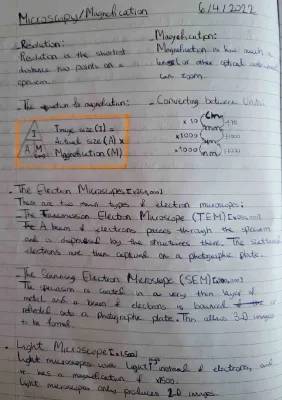 Microscopy/Magnification 6/4/2022
- Resolution:
Resolution is the shortest
distance two points on a
specimen
- Magnification:
Magnification is how much a
or other optical instrument
can zoom.
- The equation to magnification:
I
A M
Image size (I) =
Actual size (A) x
Magnification (M)
- Converting between Units:
x10 cm ÷10
x1000 mm ÷1000
x1000 ÷1000
- The Electron Microscopes
There are two main types of electron microscopes:
- The Transmission Electron Microscope (TEM)
The A beam of electrons passes through the specimen
and is by the structures there. The
electrons are then captured on a photographic plate.
- The Scanning Electron Microscope (SEM)
The specimen is coated in a very thin layer of
metal and a beam of electrons is bounced or
reflected onto a photographic plate. This allows 3-D images
to be formed.
- Light Microscope [x1500]
Light microscopes uses Light instead of electrons, and
it has a magnification of x1500.
Light microscopes only produces 2-D images.